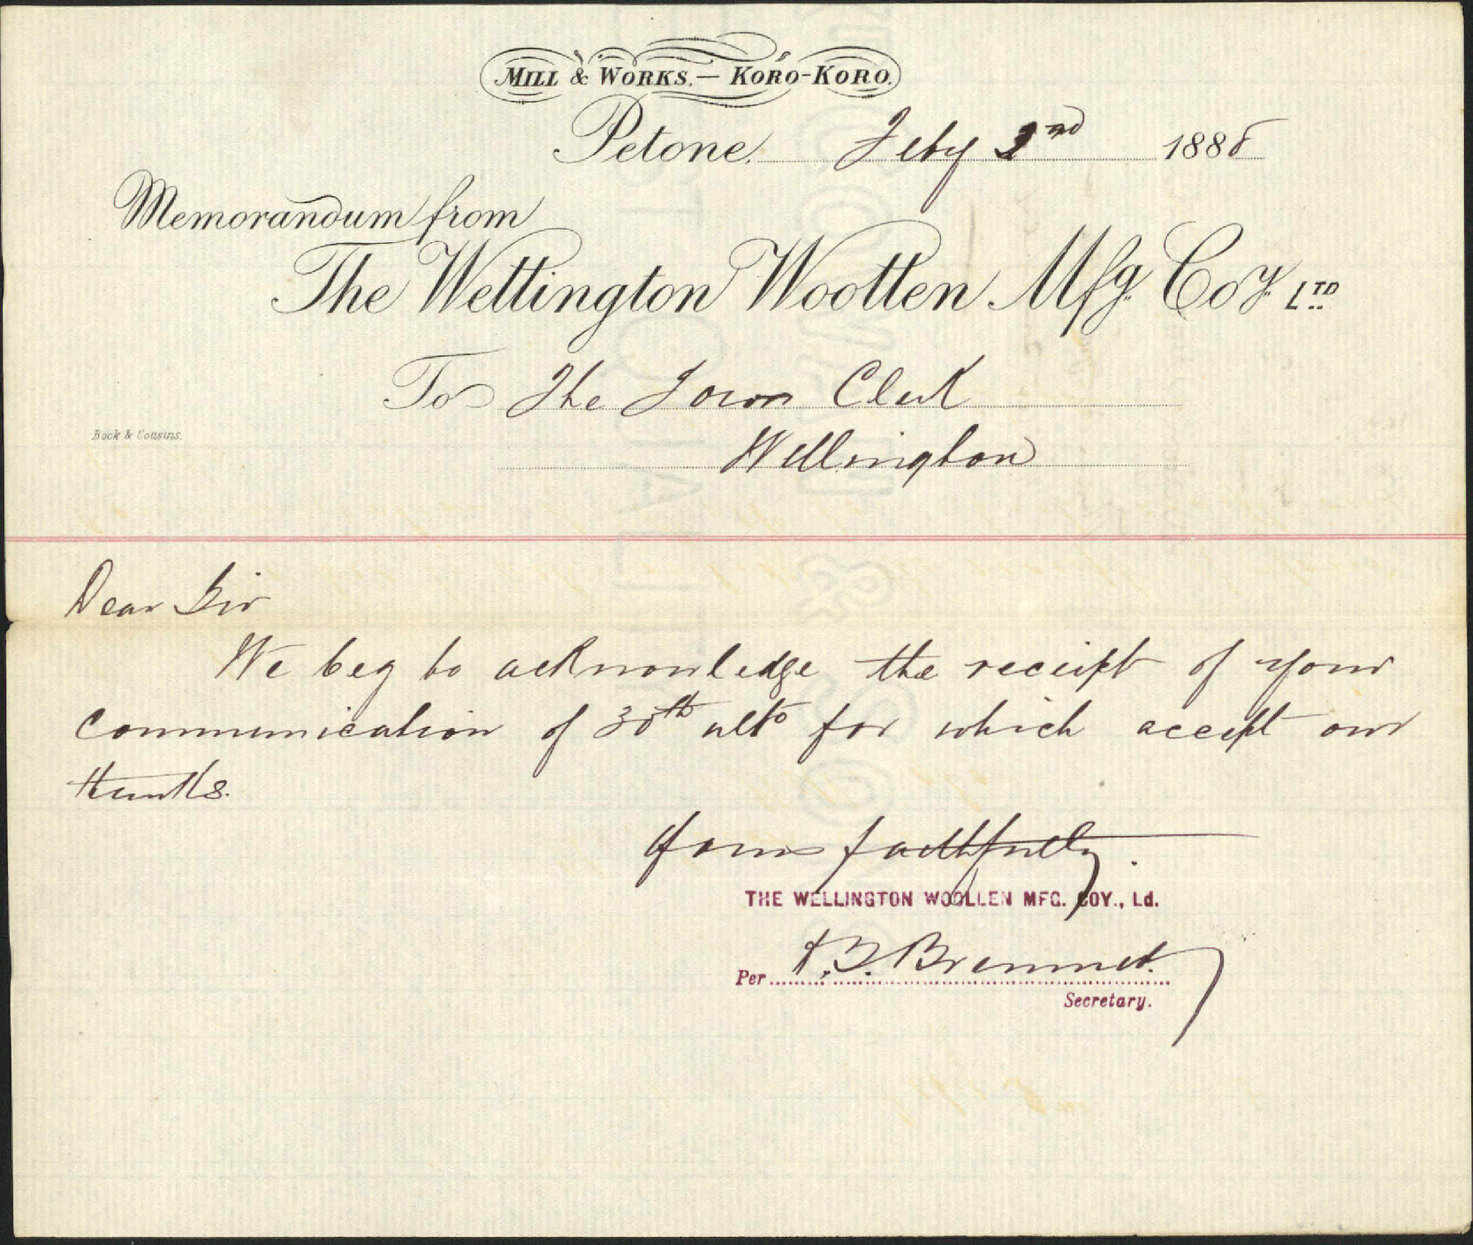 MILL & WORKS.— KORO-KORO.
Petone. Feby 2nd 1888
Memorandum from
The Wellington Woollen Mfg. Coy. LTD
To The Town Clerk
Wellington
Bock & Cousins.
Dear Sir
We beg to acknowledge the receipt of your
communication of 30th ulto for which accept our
thanks.
Yours faithfully.
THE WELLINGTON WOOLLEN MFG. COY., Ld.
Per
Secretary.